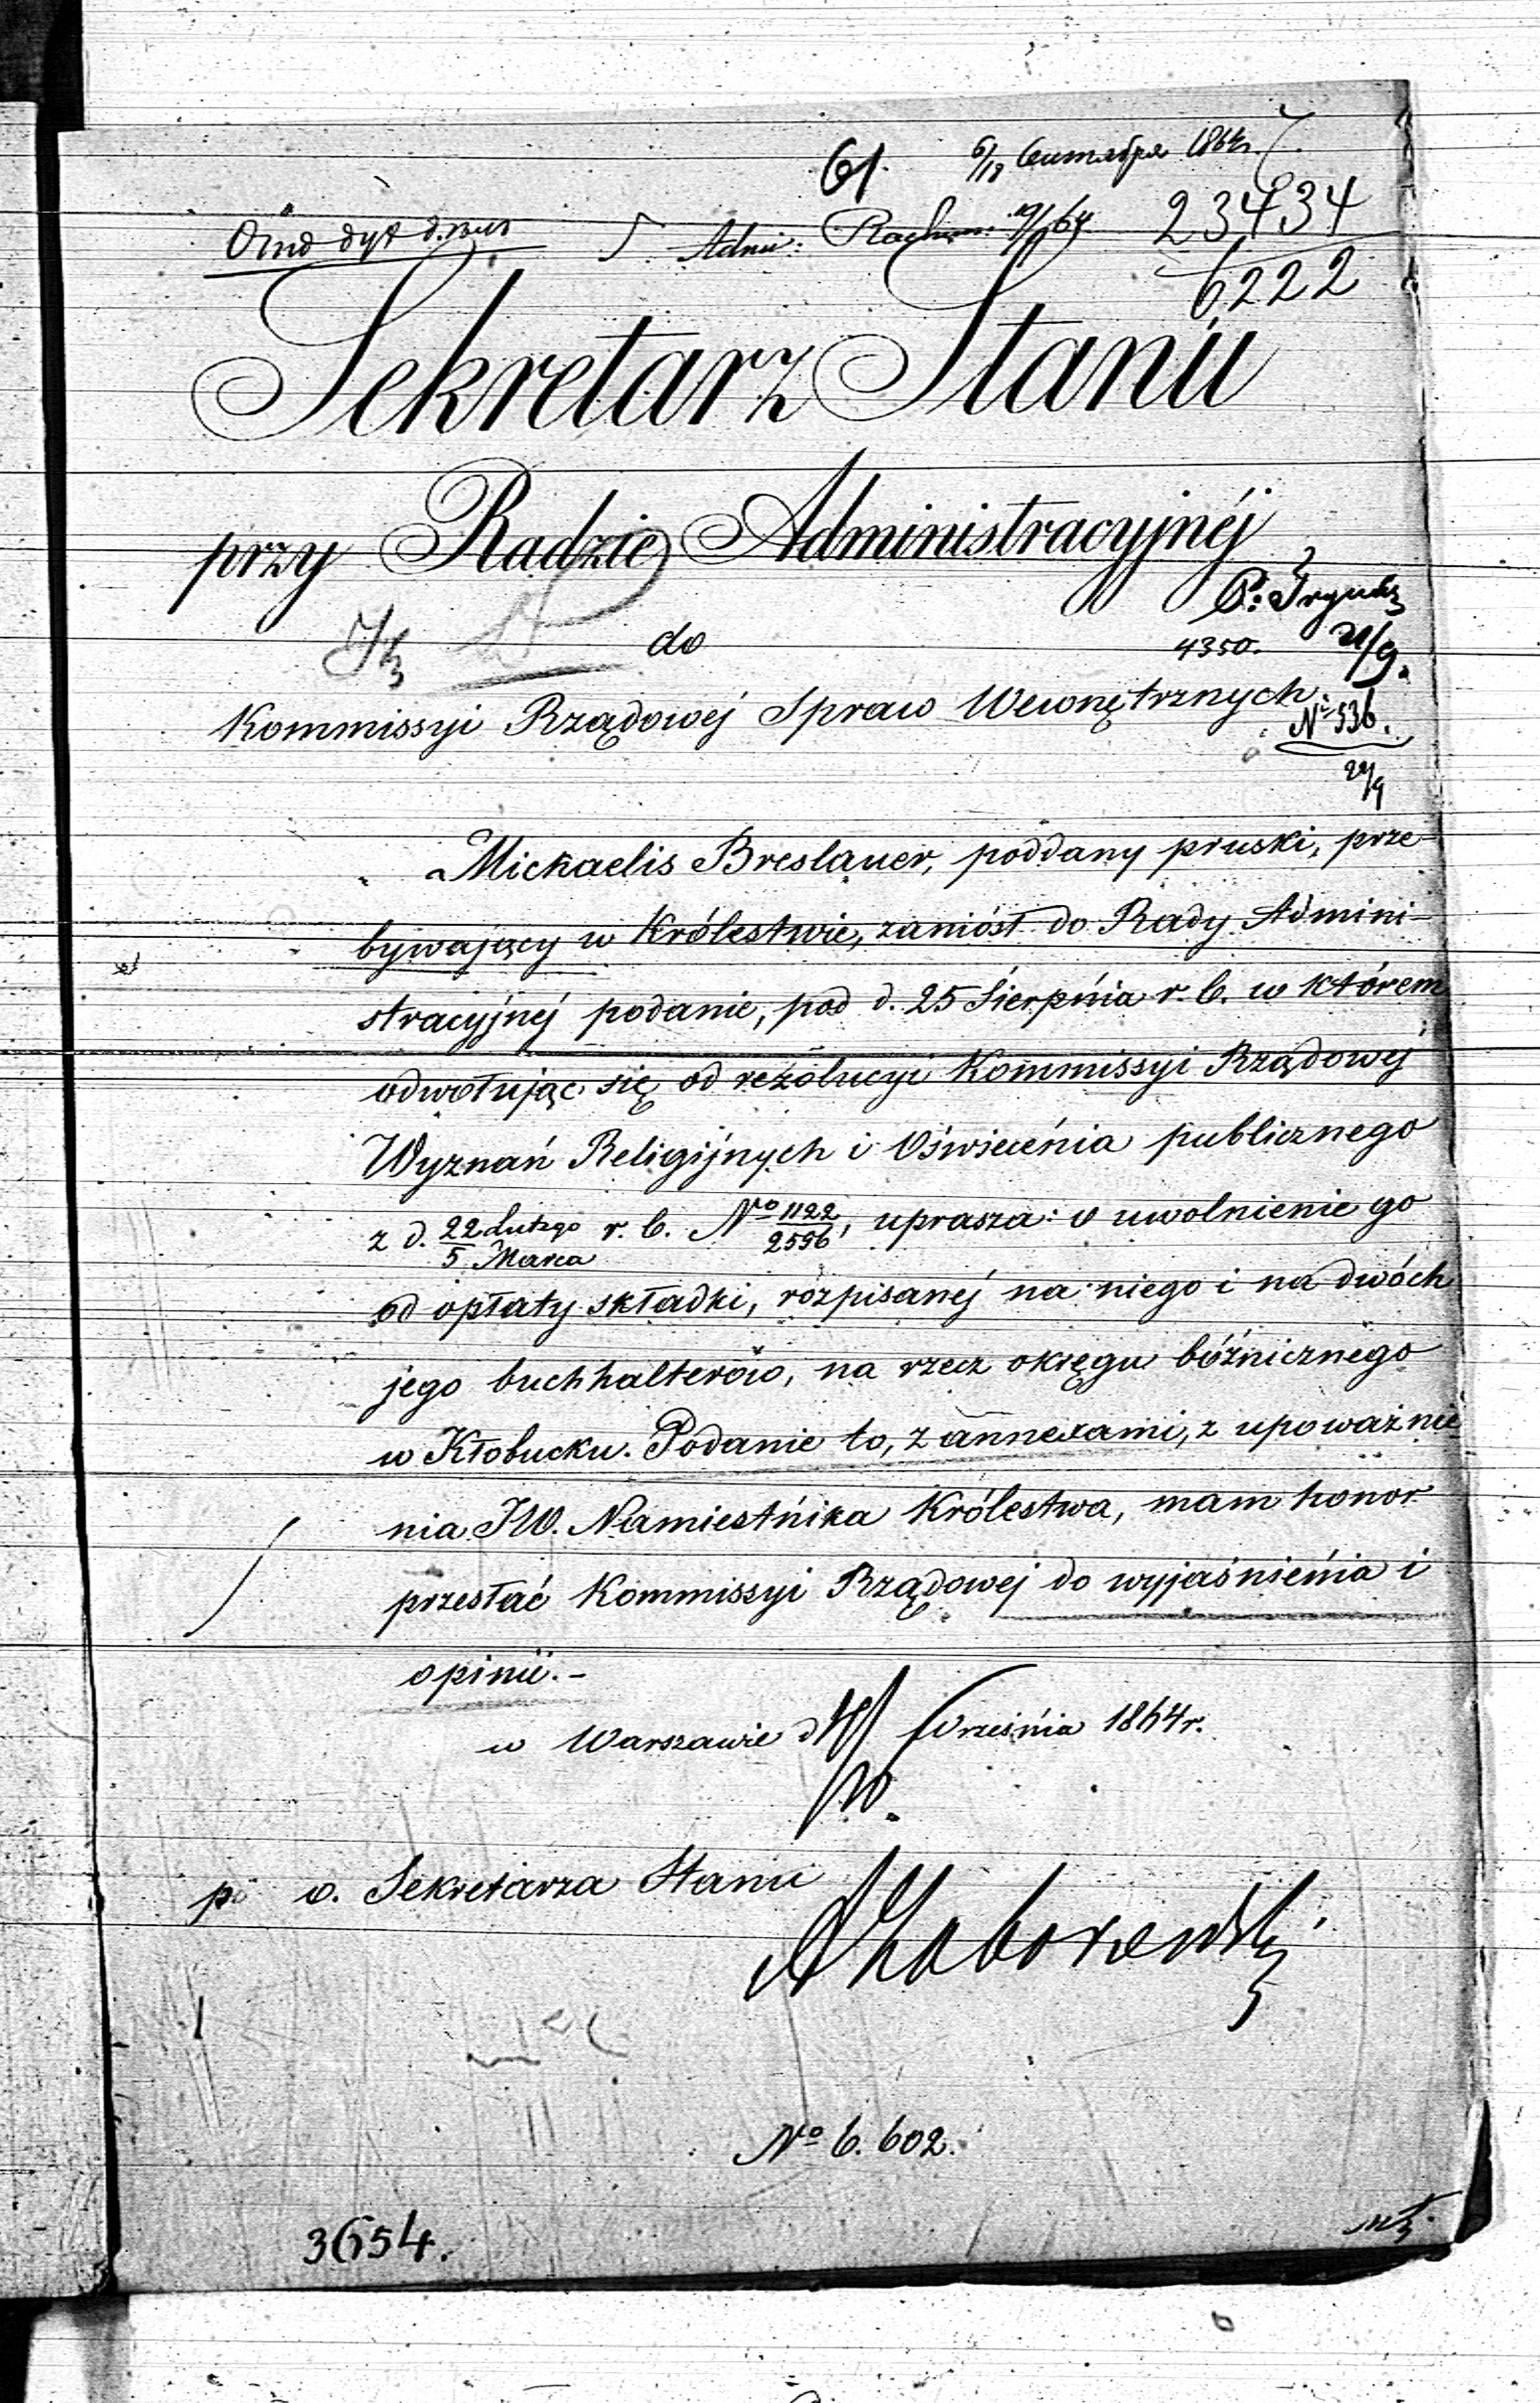 61. 6/18 Сентября 1864 г.
Adm: Rachun: 19/9 64 23434
6222
Sekretarz Stanu
przy Radzie Administracyjnéj
do 4350. 21/9.
Kommissyi Rządowéj Spraw Wewnętrznych.
№ 536.
22/9
Mickaelis Breslauer, poddany pruski, prze-
bywający w Królestwie, zaniósł do Rady Admini-
stracyjnéj podanie, pod d. 25 Sierpnia r. b. w którem
odwołując się od rezolucyi Kommissyi Rządowéj
Wyznań Religijnych i Oświecenia publicznego
z d. 22 Lutego / 5 Marca r. b. № 1122/2596, uprasza: o uwolnienie go
od opłaty składki, rozpisanéj na niego i na dwóch
jego buchhalterów, na rzecz okręgu bóźnicznego
w Kłobucku. Podanie to, z annexami, z upoważnie
nia JW. Namiestnika Królestwa, mam honor
przesłać Kommissyi Rządowej do wyjaśnienia i
opinii.-
w Warszawie d. Września 1864 r.
p. o. Sekretarza Stanu
AZaborowski
№ 6.602.
3654.